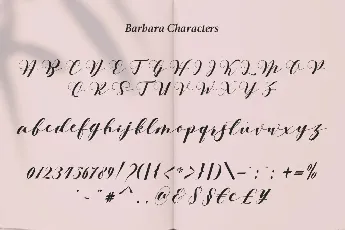 Barbara Characters
A B C D E F G H I J K L M O P
Q R S T U V W X Y Z
a b c d e f g h i j k l m o p q r s t u v w x y z
0 1 2 3 4 5 6 7 8 9 ! ? ( [ { < * > } ] ) \ - ; : + = %
" ~ " # ^ , . @ & $ § £ € £ ¥